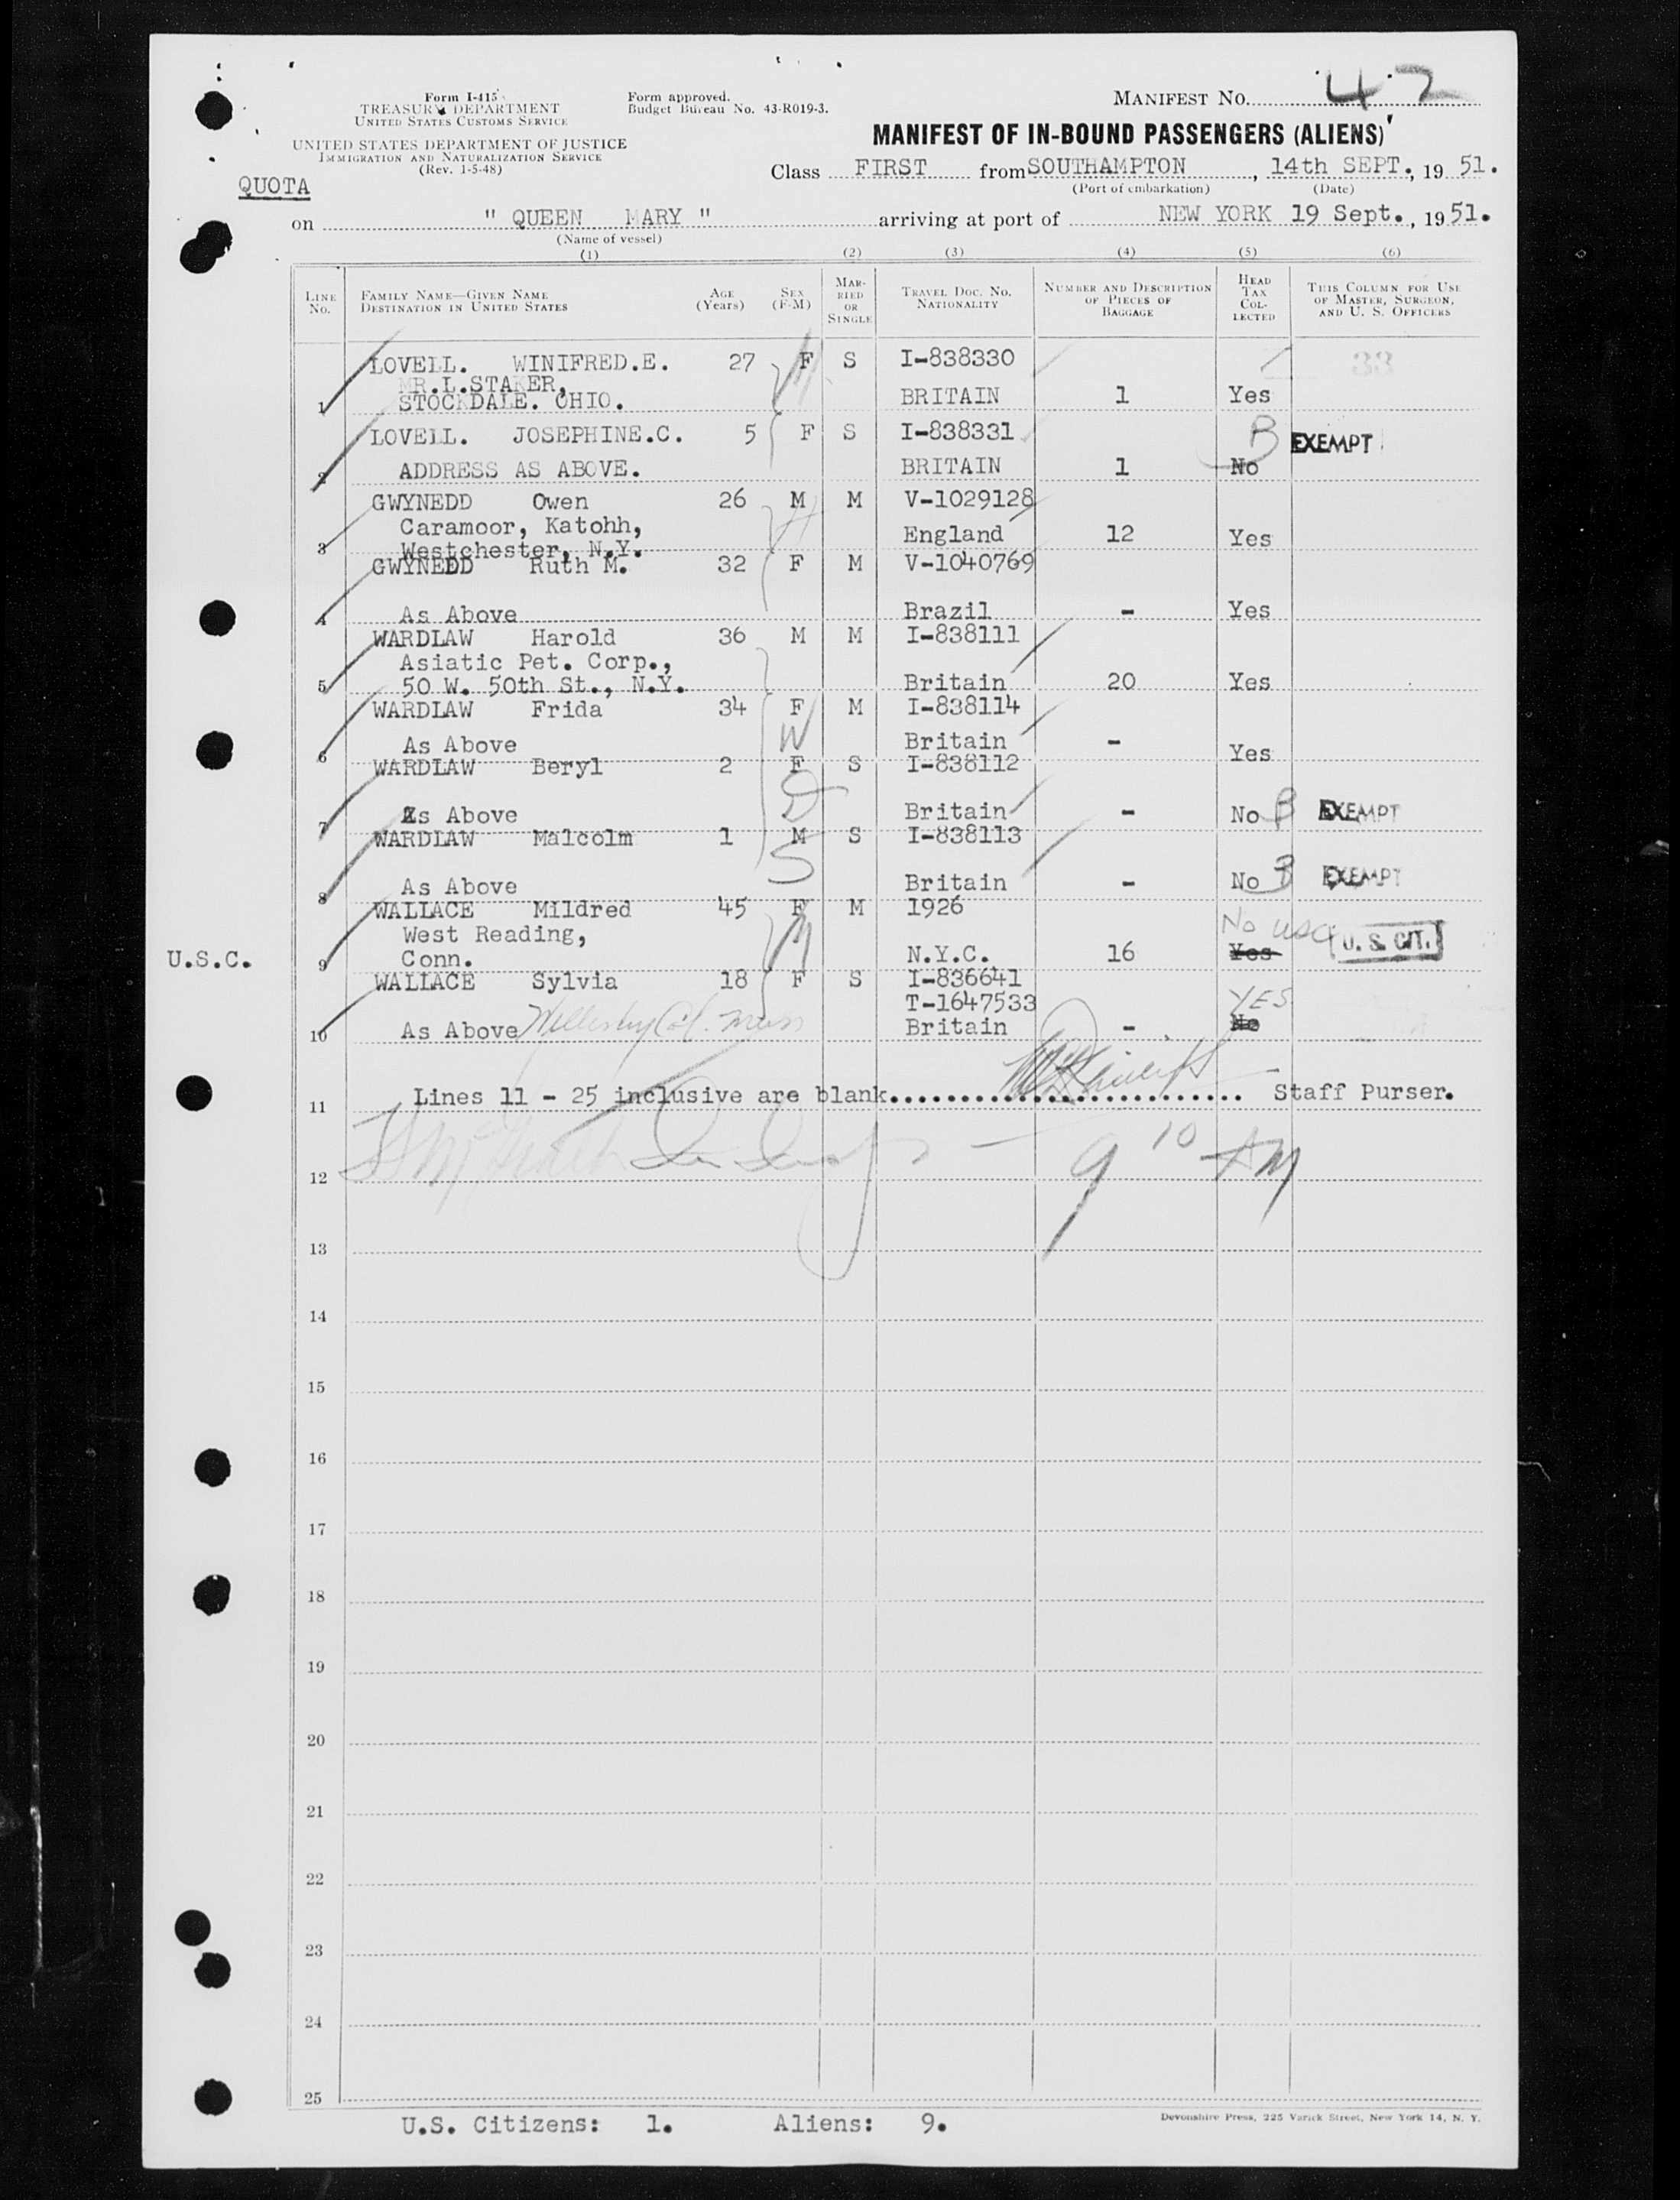 Form I-415
TREASURY DEPARTMENT
UNITED STATES CUSTOMS SERVICE
UNITED STATES DEPARTMENT OF JUSTICE
IMMIGRATION AND NATURALIZATION SERVICE
(Rev. 1-5-48)
Form approved.
Budget Bureau No. 43-R019-3.
MANIFEST NO. 42
MANIFEST OF IN-BOUND PASSENGERS (ALIENS)
QUOTA
Class FIRST from SOUTHAMPTON, 14th SEPT., 19 51.
(Port of embarkation) (Date)
on " QUEEN MARY " arriving at port of NEW YORK 19 Sept., 19 51.
(Name of vessel)
(1) (2) (3) (4) (5) (6)
LINE NO. FAMILY NAME—GIVEN NAME DESTINATION IN UNITED STATES AGE (Years) SEX (F-M) MARRIED OR SINGLE TRAVEL DOC. NO. NATIONALITY NUMBER AND DESCRIPTION OF PIECES OF BAGGAGE HEAD TAX COLLECTED THIS COLUMN FOR USE OF MASTER, SURGEON, AND U. S. OFFICERS
LOVELL. WINIFRED.E. 27 F S I-838330 33
MR.L.STAKER,
1 STOCKDALE. OHIO. BRITAIN 1 Yes
LOVELL. JOSEPHINE.C. 5 F S I-838331 B EXEMPT
2 ADDRESS AS ABOVE. BRITAIN 1 No
GWYNEDD Owen 26 M M V-1029128
Caramoor, Katohh, England 12 Yes
3 Westchester, N.Y.
GWYNEDD Ruth M. 32 F M V-1040769
4 As Above Brazil - Yes
WARDLAW Harold 36 M M I-838111
Asiatic Pet. Corp.,
5 50 W. 50th St., N.Y. Britain 20 Yes
WARDLAW Frida 34 F M I-838114
6 As Above Britain - Yes
W
WARDLAW Beryl 2 F S I-838112
7 As Above Britain - No B EXEMPT
WARDLAW Malcolm 1 M S I-838113
8 As Above Britain - No B EXEMPT
WALLACE Mildred 45 F M 1926
West Reading, No USC U. S. CIT.
U.S.C. 9 Conn. N.Y.C. 16 Yes
WALLACE Sylvia 18 F S I-836641
T-1647533 YES
10 As Above Wellesley Col. Mass Britain - No
11 Lines 11 - 25 inclusive are blank.......................... Staff Purser.
12 9 10 AM
13
14
15
16
17
18
19
20
21
22
23
24
25
U.S. Citizens: 1. Aliens: 9.
Devonshire Press, 225 Varick Street, New York 14, N. Y.